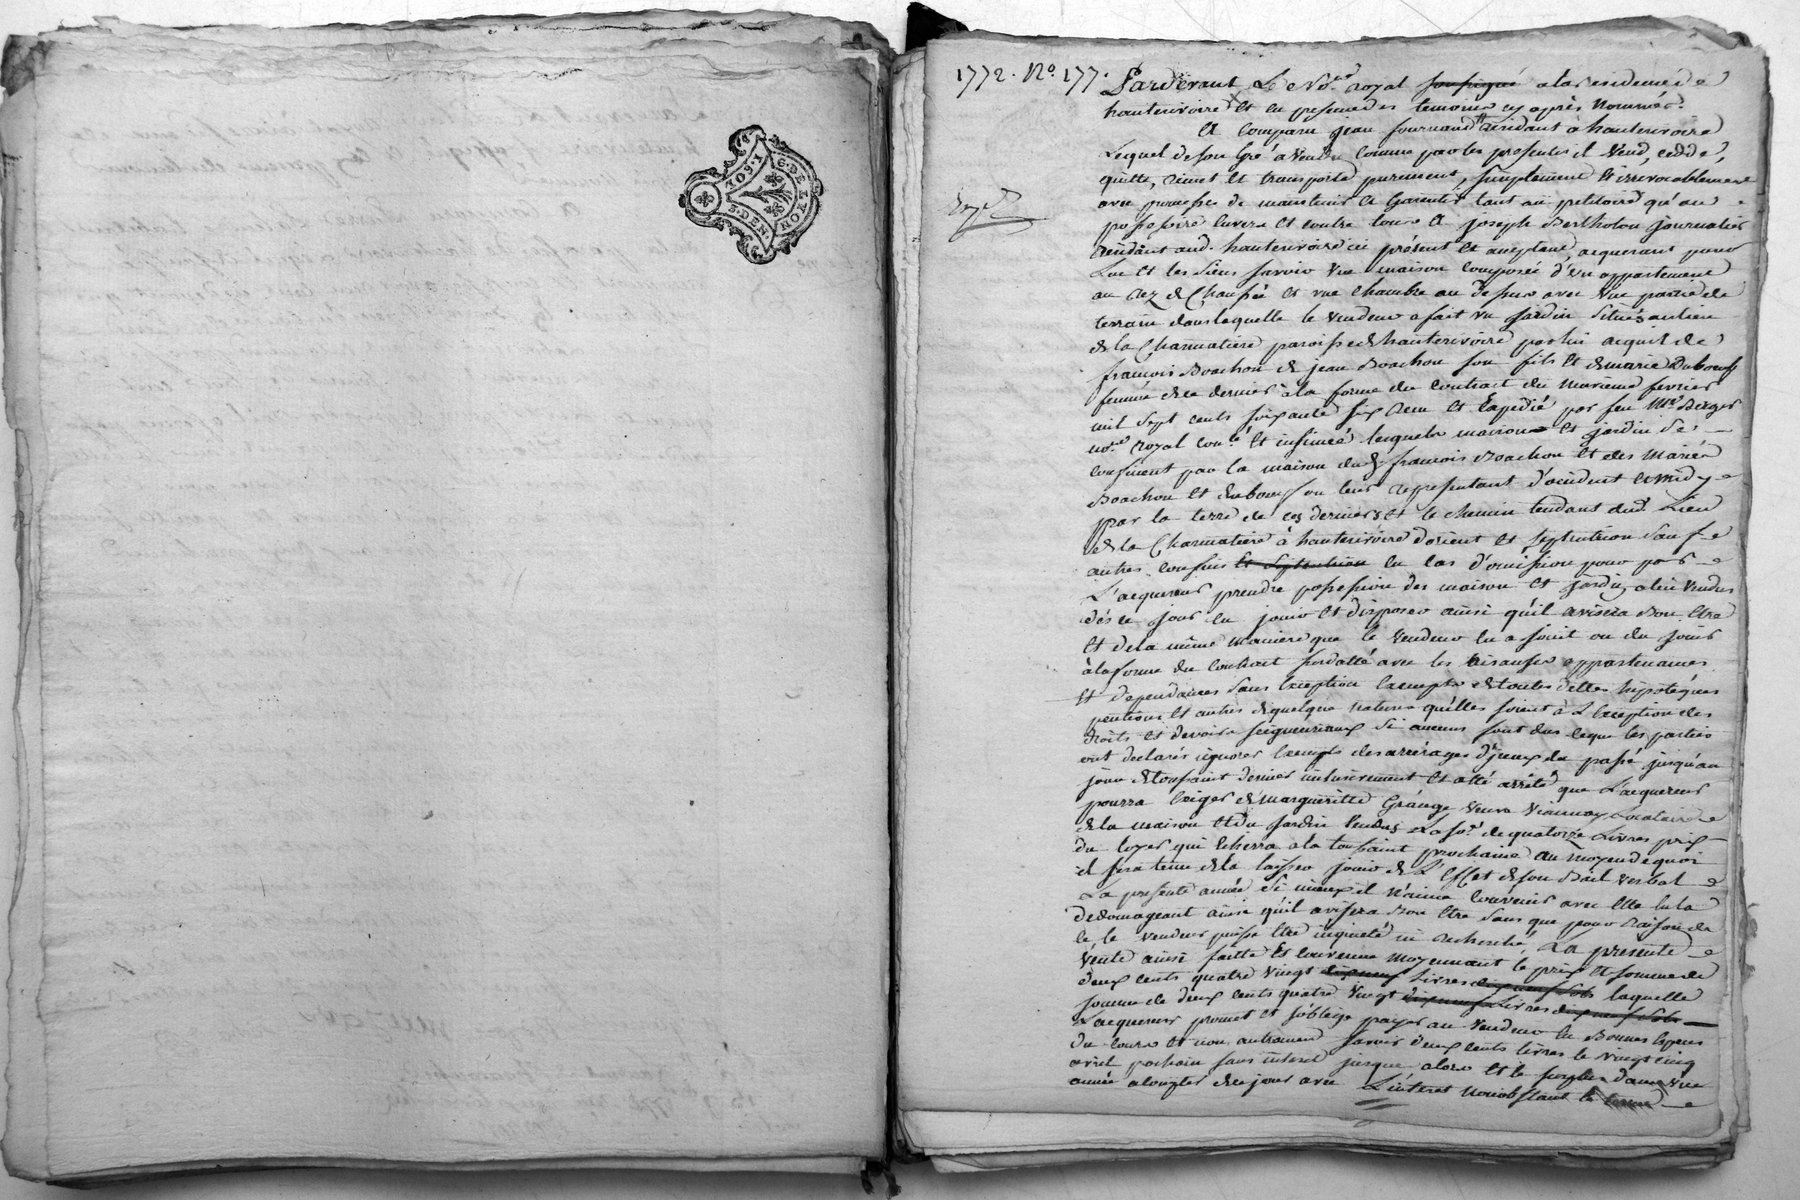 G. DE LYON
3. DEN. NOTO.
1772. No. 177.
Pardevant Le No.re royal soussigné a la residence de
hauterivoire et en presence des temoins cy après Nommés.
A Comparu jean fournand Résidant à hauterivoire
Lequel de son Gré a vendu comme par les presentes il Vend, cedde,
quitte, remet et transporte purement, simplement et irrevocablement
avec promesse de maintenir et Garentir tant au petitoire qu'au
possessoire envers et contre tous A joseph Bertholon journalier
résidant aud. hauterivoire ici présent et aceptant, acquerant pour
Lui et les siens savoir une maison composée d'un appartement
au Rez de Chaussée et une chambre au dessus avec une partie de
terrain dans laquelle le vendeur a fait un jardin Situés au lieu
de la Charmatiere paroisse de hauterivoire par lui acquis de
francois Boachon & jean Boachon son fils et de marie Duboeuf
femme de ce dernier à la forme du contrat du fevrier
mil sept cents soixante six Recu et Expedié par feu Me. Berger
no.re royal con.lé et insinué lesquels maison et jardin se
confinent par la maison dud. francois Boachon et des Mariés
Boachon et duboeuf ou leur representant d'occident et midy
par la terre de ces derniers et le chemin tendant dud. Lieu
de la Charmatiere à hauterivoire d'orient et septentrion sauf
autres confins et septentrion en cas d'omission pour par
L'acquereur prendre possession des maison et jardin a lui vendus
dès ce jour en jouir et disposer ainsi qu'il avisera Bon être
Et de la même maniere que le vendeur en a jouit ou du jouir
à la forme du contrat susdatté avec les aisances appartenances
et dependances sans exception exempts de toutes dettes hipoteques
pentions et autres de quelque nature qu'elles soient à L'exception des
droits et devoirs seigneuriaux si aucuns sont dus ceque les parties
ont declarés ignorer exempts des arrérages d'iceux du passé jusqu'au
jour de toussaint dernier inclusivement Et a été arrêté que L'acquereur
pourra exiger de margueritte Grange veuve Locataire
de la maison et du jardin Vendus La so.e de quatorze Livres prix
du loyer qui echerra à la toussaint prochaine au moyen de quoi
il sera tenu de la laisser jouir de L'Effet de son Bail verbal
La presente année si mieux il N'aime convenir avec elle en la
dedomageant ainsi qu'il avisera Bon être sans que pour raison de
ce, le vendeur puisse être inquieté ni recherché, La presente
Vente ainsi faitte Et convenue moyennant le prix et somme de
deux cents quatre vingt dix neuf Livres dix neuf sols laquelle
somme de deux cents quatre vingt dix neuf Livres dix neuf sols
L'acquereur promet et s'oblige payer au vendeur en Bonnes especes
du cours et non autrement savoir deux cents livres le vingt cinq
avril prochain sans interet jusque alors et le surplus dans une
année a compter de ce jour avec L'interet nonobstant le terme